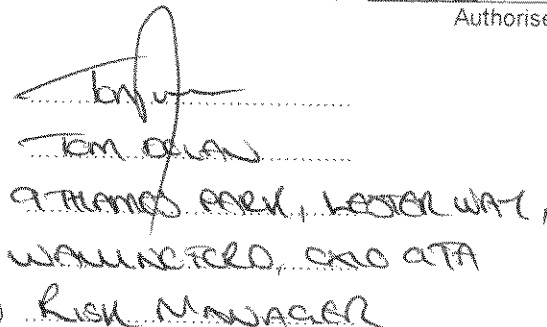 Authorise
TOM
9 THAMES PARK, LESTER WAY,
WALLINGFORD, OX10 9TA
RISK MANAGER